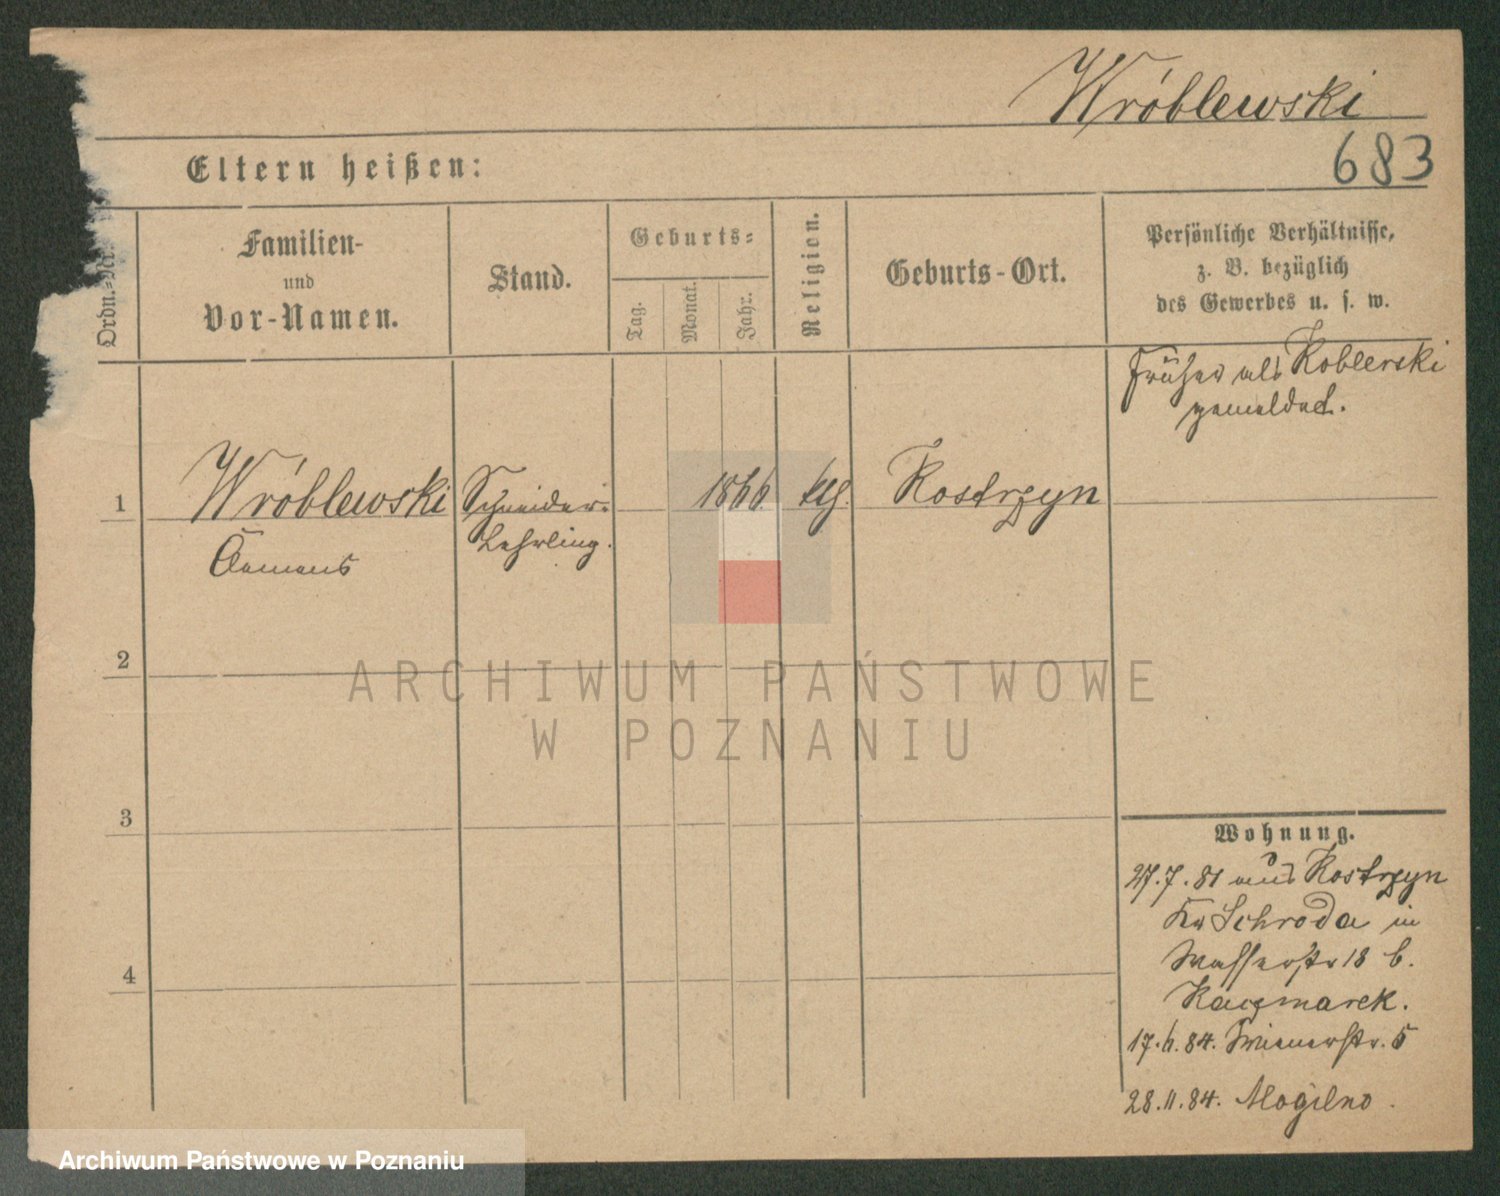 Wróblewski
683
Eltern heißen:
Ordn.-Nr.
Familien-
und
Vor-Namen.
Stand.
Geburts-
Tag.
Monat.
Jahr.
Religion.
Geburts-Ort.
Persönliche Verhältnisse,
z. B. bezüglich
des Gewerbes u. s. w.
Früher als Koblerski
gemeldet.
1
Wróblewski
Clemens
Schneider-
Lehrling.
1866.
kth.
Kostrzyn
2
3
4
Wohnung.
27.7.81 aus Kostrzyn
Kr Schroda in
Wasserstr 18 b.
Kaczmarek.
17.6.84. Wienerstr. 5
28.11.84. Mogilno.
ARCHIWUM PAŃSTWOWE
W POZNANIU
Archiwum Państwowe w Poznaniu